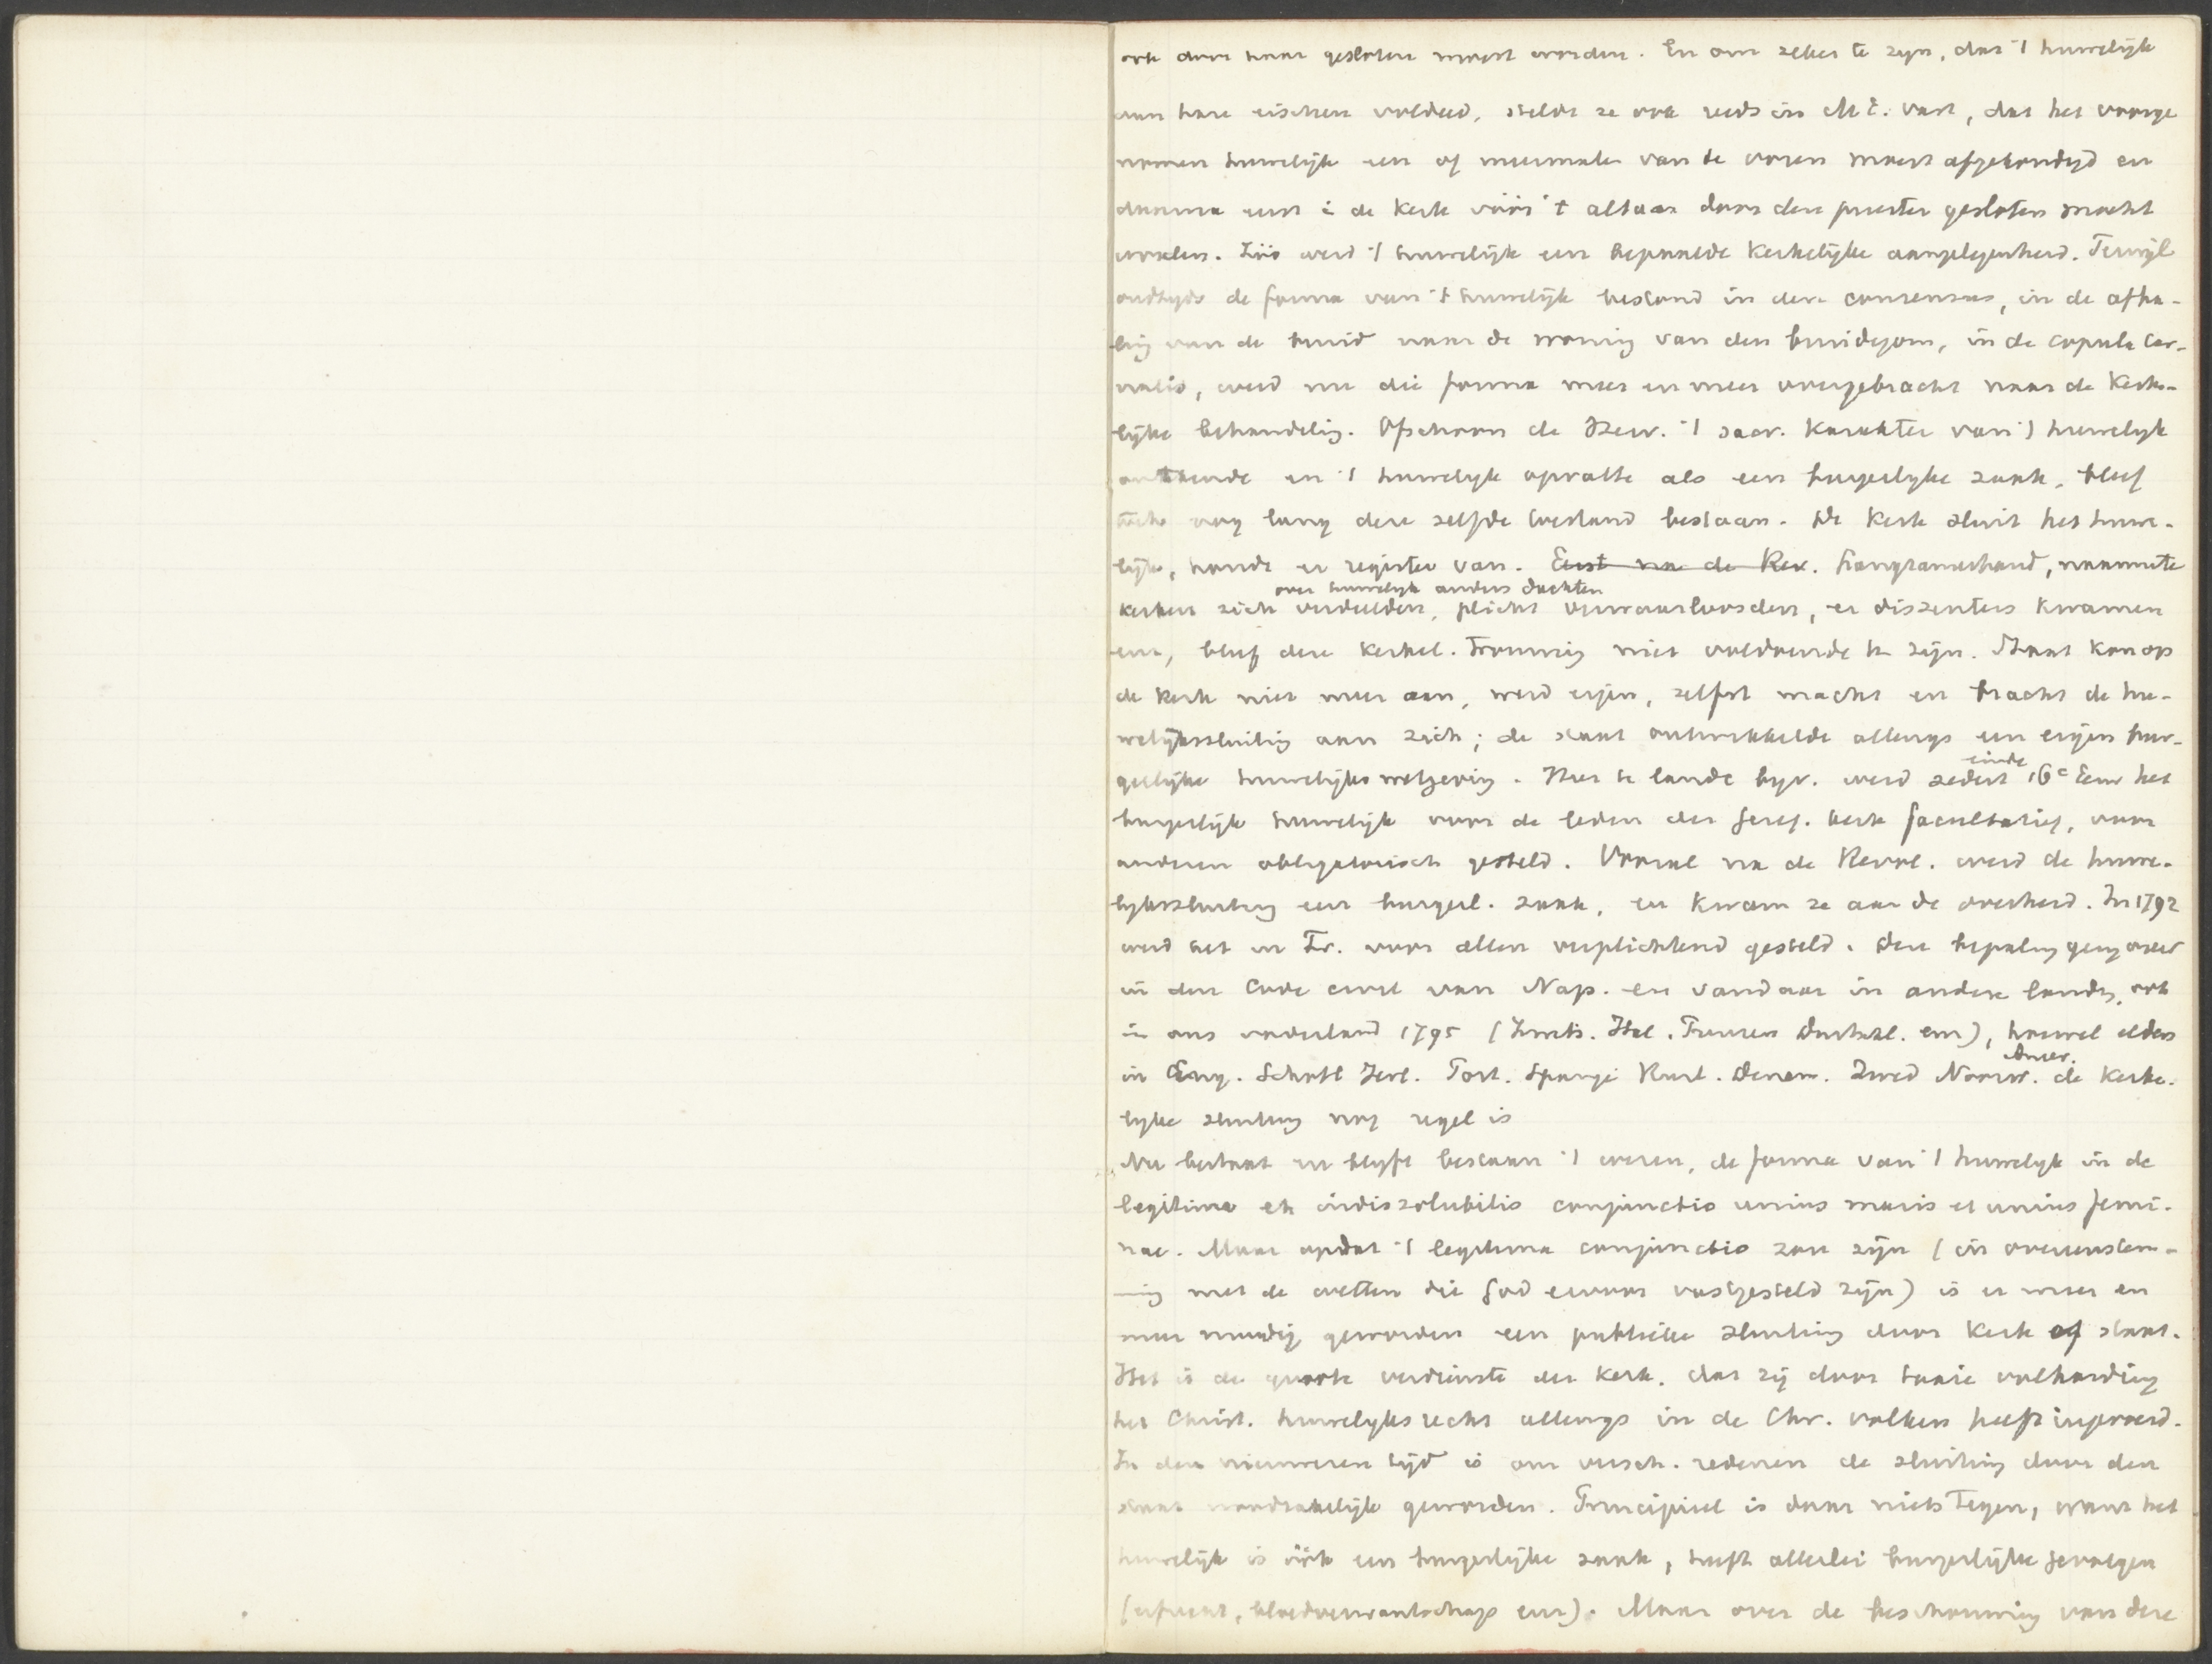 ook door haar gesloten moest worden. En om zeker te zijn, dat 't huwelijk
aan hare eischen voldeed, stelde ze ook reeds in M E. vast, dat het voorge
nomen huwelijk een of meermalen van te voren moest afgekondigd en
daarna eerst in de kerk vóór 't altaar door den priester gesloten mocht
worden. Zóó werd 't huwelijk een bepaalde kerkelijke aangelegenheid. Terwijl
oudtijds de forma van 't huwelijk bestond in den consensus, in de afha-
ling van de bruid naar de woning van den bruidegom, in de copula car-
nalis, werd nu die forma meer en meer overgebracht naar de kerke-
lijke behandeling. Ofschoon de Herv. 't sacr. karakter van 't huwelijk
ontkende en 't huwelijk opvatte als een burgerlijke zaak, bleef
toch nog lang deze zelfde toestand bestaan. De kerk sluit het huwe-
lijk, houdt er register van. Eerst na de Rev. Langzamerhand, naarmate
over huwelijk anders dachten
kerken zich verdeelden, plicht verwaarloosden, er dissenters kwamen
enz, bleef deze kerkel. trouwing niet voldoende te zijn. Staat kon op
de kerk niet meer aan, werd eigen, zelfst macht en bracht de hu-
welijkssluiting aan zich; de staat ontwikkelde allengs een eigen bur-
gerlijke huwelijkswetgeving. Hier te lande bijv. werd sedert einde 16e eeuw het
burgerlijk huwelijk voor de leden der Geref. kerk facultatief, voor
anderen obligatorisch gesteld. Vooral na de Revol. werd de huwe-
lijkssluiting een burgerl. zaak, en kwam ze aan de overheid. In 1792
werd het in Fr. voor allen verplichtend gesteld. Deze bepaling ging over
in den Code civil van Nap. en vandaar in andere landen, ook
in ons vaderland 1795 (Zwits. Ital. Pruisen Duitschl. enz), hoewel elders
in Eng. Schotl Ierl. Port. Spanje Rusl. Denem. Zwed Noorw. Amer. de kerke-
lijke sluiting nog regel is
Nu bestaat en blijft bestaan 't wezen, de forma van 't huwelijk in de
legitima et indissolubilis conjunctio unius maris et unius femi-
nae. Maar opdat 't legitima conjunctio zou zijn (in overeenstem-
ming met de wetten die God ervoor vastgesteld zijn) is er meer en
meer noodig geworden een publieke sluiting door kerk of staat.
Het is de groote verdienste der kerk, dat zij door taaie volharding
het Christ. huwelijksrecht allengs in de Chr. volken heeft ingevoerd.
In den nieuweren tijd is om versch. redenen de sluiting door den
staat noodzakelijk geworden. Principieel is daar niets tegen, want het
huwelijk is óók een burgerlijke zaak, heeft allerlei burgerlijke gevolgen
(erfrecht, bloedverwantschap enz). Maar over de beschouwing van deze